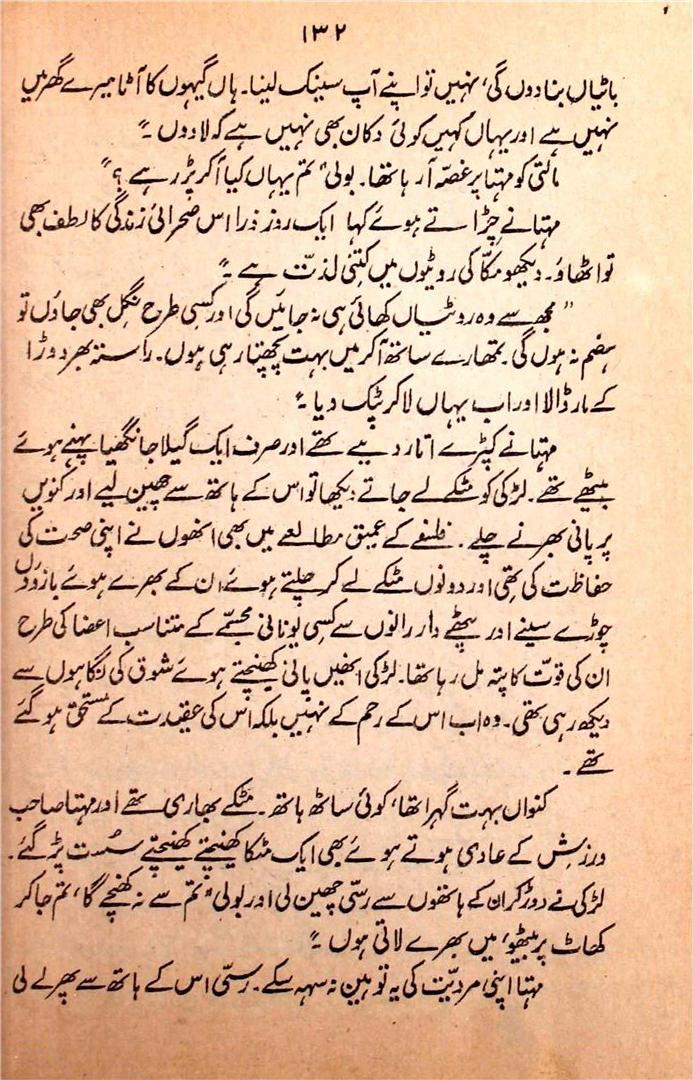 ۱۳۲
باٹیاں بنا دوں گی، نہیں تو اپنے آپ سینک لینا۔ ہاں گیہوں کا آٹا میرے گھر میں
نہیں ہے اور یہاں کہیں کوئی دکان بھی نہیں ہے کہ لا دوں۔“
مالتی کو مہتا پر غصّہ آ رہا تھا۔ بولی ”تم یہاں کیا آ کر پڑ رہے؟“
مہتا نے چڑاتے ہوئے کہا ایک روز ذرا اس صحرائی زندگی کا لطف بھی
تو اٹھاؤ۔ دیکھو مکّا کی روٹیوں میں کتنی لذّت ہے۔“
”مجھ سے وہ روٹیاں کھائی ہی نہ جائیں گی اور کسی طرح نگل بھی جاؤں تو
ہضم نہ ہوں گی۔ تمھارے ساتھ آ کر میں بہت پچھتا رہی ہوں۔ راستہ بھر دوڑا
کے مار ڈالا اور اب یہاں لا کر پٹک دیا۔“
مہتا نے کپڑے اتار دیے تھے اور صرف ایک گیلا جانگھیا پہنے ہوئے
بیٹھے تھے۔ لڑکی کو مٹکے لے جاتے دیکھا تو اس کے ہاتھ سے چھین لیے اور کنویں
پر پانی بھرنے چلے۔ فلسفے کے عمیق مطالعے میں بھی انھوں نے اپنی صحت کی
حفاظت کی تھی اور دونوں مٹکے لے کر چلتے ہوئے ان کے بھرے ہوئے بازوؤں
چوڑے سینے اور پٹھے دار رانوں سے کسی یونانی مجسّمے کے متناسب اعضا کی طرح
ان کی قوّت کا پتہ مل رہا تھا۔ لڑکی انھیں پانی کھینچتے ہوئے شوق کی نگاہوں سے
دیکھ رہی تھی۔ وہ اب اس کے رحم کے نہیں بلکہ اس کی عقیدت کے مستحق ہو گئے
تھے۔
کنواں بہت گہرا تھا، کوئی ساٹھ ہاتھ۔ مٹکے بھاری تھے اور مہتا صاحب
ورزش کے عادی ہوتے ہوئے بھی ایک مٹکا کھینچتے کھینچتے سُست پڑ گئے۔
لڑکی نے دوڑ کر ان کے ہاتھوں سے رسّی چھین لی اور بولی ”تم سے نہ کھنچے گا، تم جا کر
کھاٹ پر بیٹھو، میں بھرے لاتی ہوں۔“
مہتا اپنی مردیّت کی یہ توہین نہ سہہ سکے۔ رسّی اس کے ہاتھ سے پھر لے لی